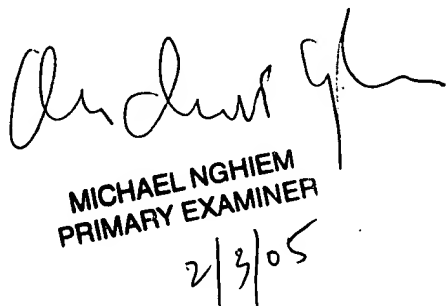 MICHAEL NGHIEM
PRIMARY EXAMINER
2/3/05